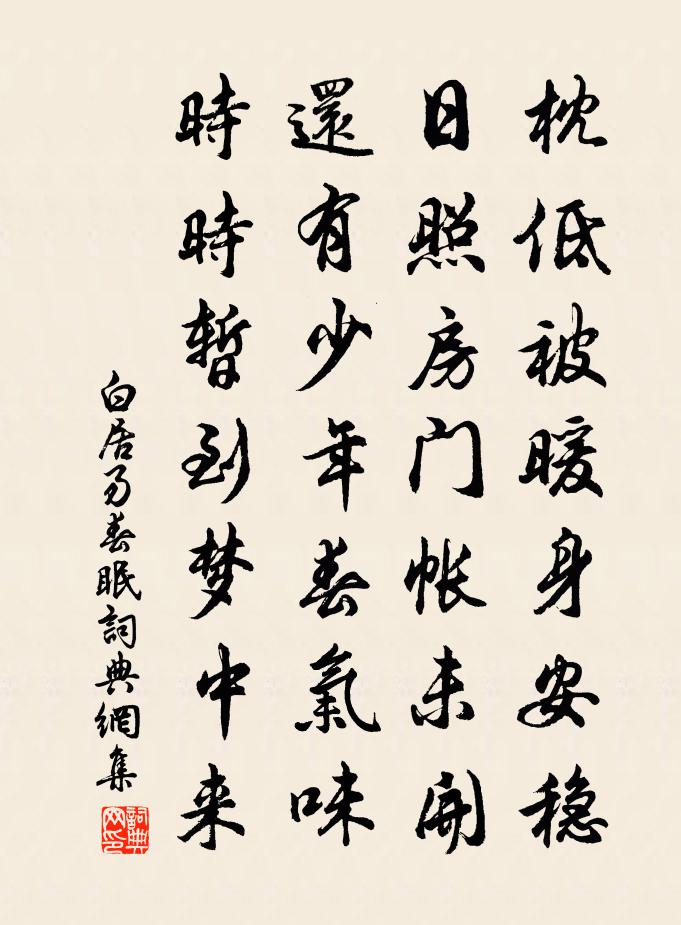 枕低被暖身安稳
日照房门帐未開
還有少年春氣味
時時暫到梦中来
白居易春眠詞典網集
詞典網印